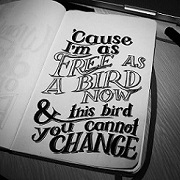 'Cause
I'm as
FREE as
A BIRD
NOW
& this bird
you cannot
CHANGE